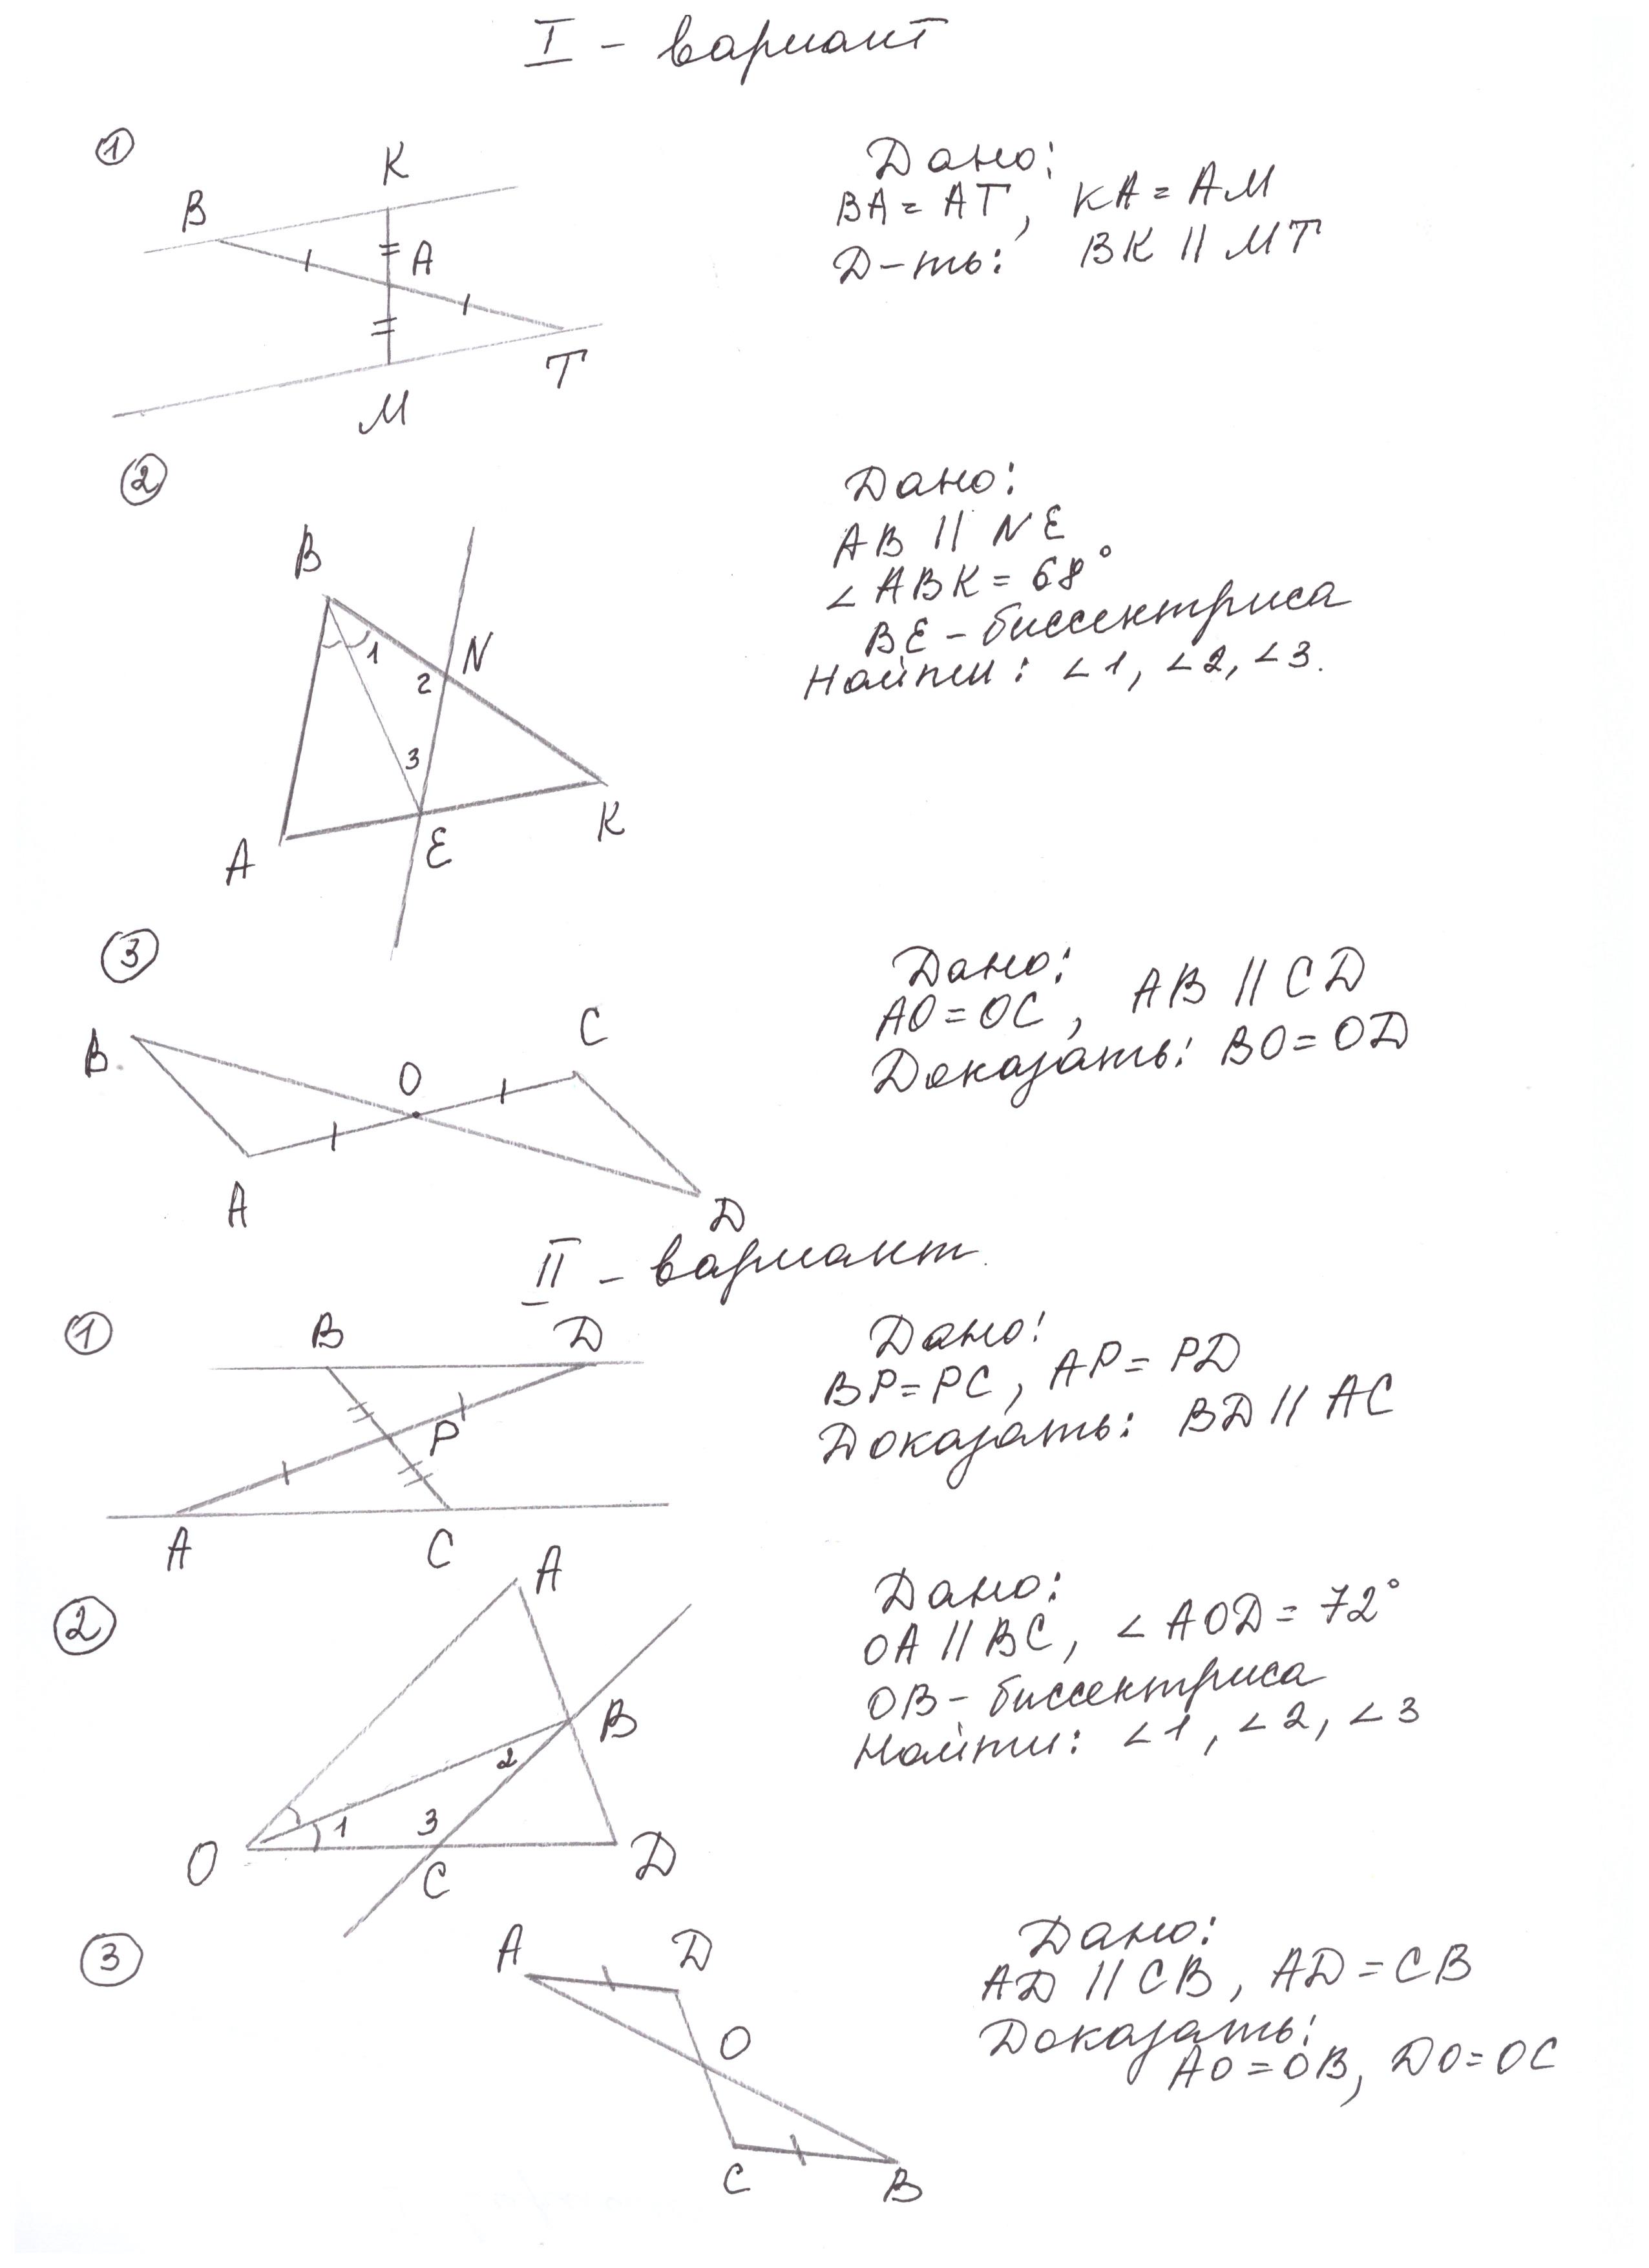 I - вариант
1
B
K
A
M
T
Дано:
BA = AT, KA = AM
Д-ть: BK || MT
2
B
1
N
2
3
A
E
K
Дано:
AB || NE
∠ABK = 68°
BE - биссектриса
Найти: ∠1, ∠2, ∠3.
3
B
O
C
A
D
Дано:
AO = OC, AB || CD
Доказать: BO = OD
II - вариант
1
B
D
P
A
C
Дано:
BP = PC, AP = PD
Доказать: BD || AC
2
A
B
2
1
3
O
C
D
Дано:
OA || BC, ∠AOD = 72°
OB - биссектриса
Найти: ∠1, ∠2, ∠3
3
A
D
O
C
B
Дано:
AD || CB, AD = CB
Доказать:
AO = OB, DO = OC